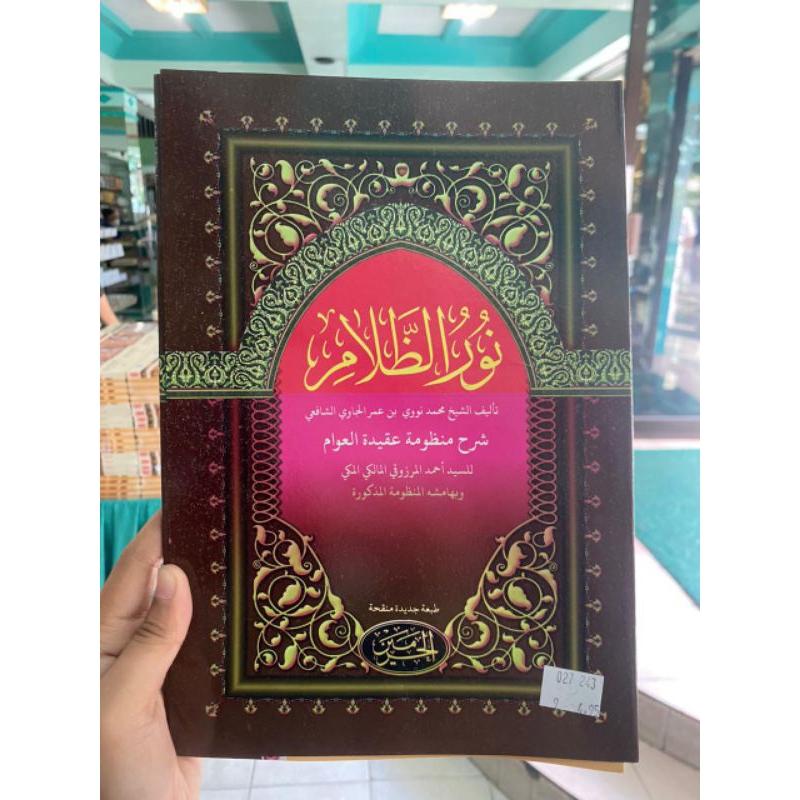 نُورُ الظَّلَامِ
تأليف الشيخ محمد نووي بن عمر الجاوي الشافعي
شرح منظومة عقيدة العوام
للسيد أحمد المرزوقي المالكي المكي
وبهامشه المنظومة المذكورة
طبعة جديدة منقحة
الحرمين
027 243